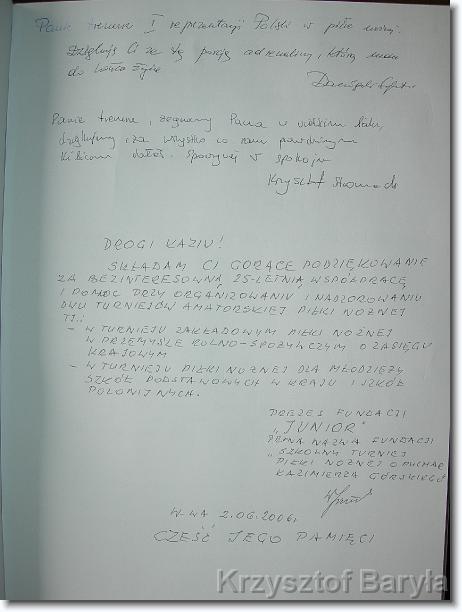 Panie trenerze I reprezentacji Polski w piłce nożnej.
Dziękuję Ci za tę porcję adrenaliny, którą mam
do końca życia
Panie trenerze, żegnamy Pana w wielkim żalu,
dziękujemy za wszystko co nam prawdziwym
kibicom dałeś. Spoczywaj w spokoju
Krzysztof
DROGI KAZIU!
SKŁADAM CI GORĄCE PODZIĘKOWANIE
ZA BEZINTERESOWNĄ 25-LETNIĄ WSPÓŁPRACĘ
I POMOC PRZY ORGANIZOWANIU I NADZOROWANIU
DWU TURNIEJÓW AMATORSKIEJ PIŁKI NOŻNEJ
TJ.:
- W TURNIEJU ZAKŁADOWYM PIŁKI NOŻNEJ
W PRZEMYŚLE ROLNO-SPOŻYWCZYM O ZASIĘGU
KRAJOWYM
- W TURNIEJU PIŁKI NOŻNEJ DLA MŁODZIEŻY
SZKÓŁ PODSTAWOWYCH W KRAJU I SZKÓŁ
POLONIJNYCH.
PREZES FUNDACJI
"JUNIOR"
PEŁNA NAZWA FUNDACJI
"SZKOLNY TURNIEJ
PIŁKI NOŻNEJ O PUCHAR
KAZIMIERZA GÓRSKIEGO"
W-WA 2.06.2006r.
CZEŚĆ JEGO PAMIĘCI
Krzysztof Baryła